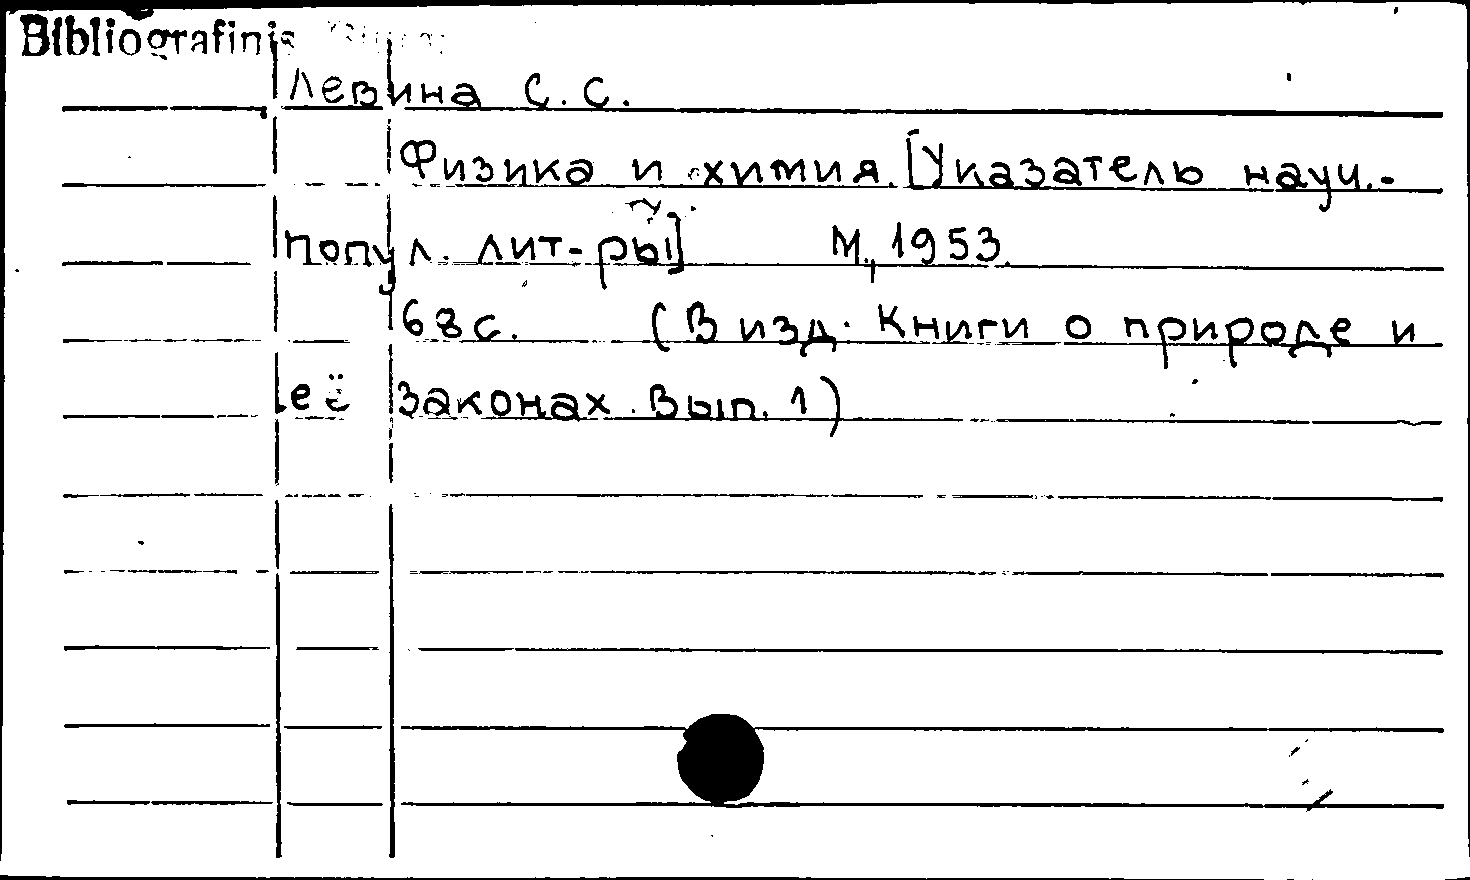 Bibliografinis
Левина С. С.
Физика и химия. [Указатель науч.-
попул. лит-ры] М., 1953.
68 с. (В изд. Книги о природе и
её законах. Вып. 1)